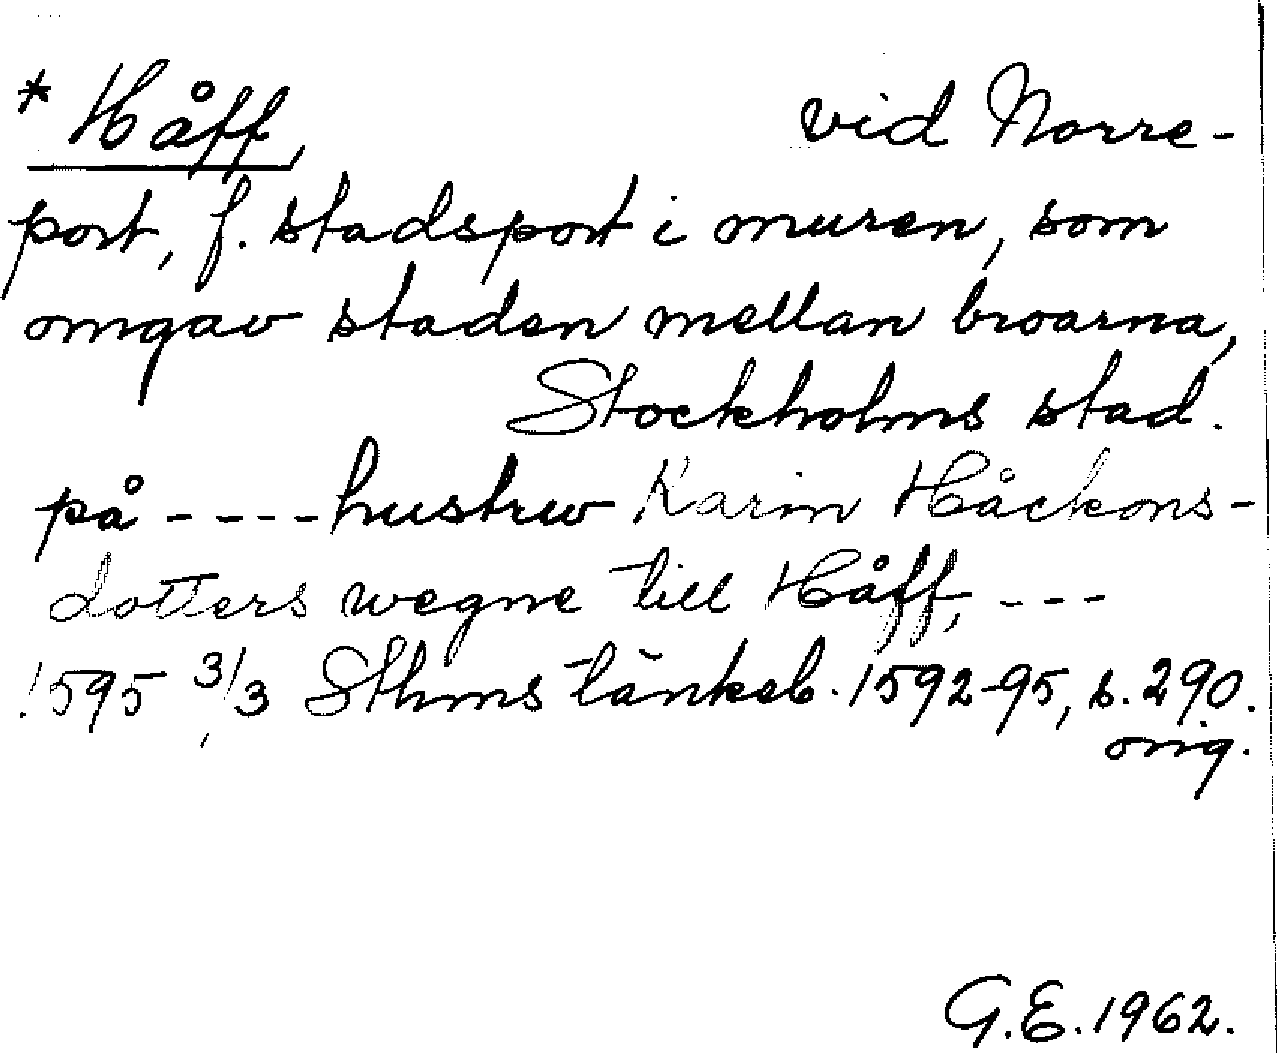 * Håff, vid Norre-
port, f. stadsport i muren, som
omgav staden mellan broarna,
Stockholms stad.
på - - - - hustrw Karin Håckons-
dotters wegne till Håff, - - -
1595 3/3 Sthms tänkeb. 1592-95, s. 290.
orig.
G.E. 1962.